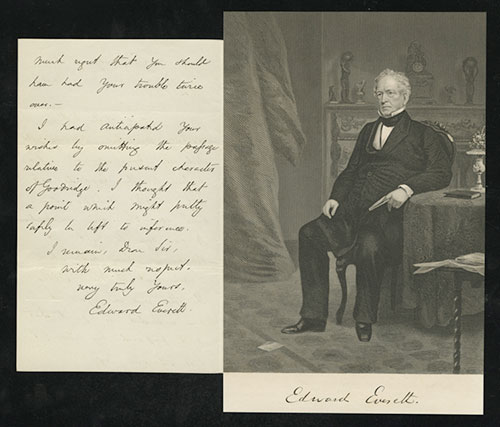 much regret that you should
have had your trouble twice
over.—
I had anticipated your
wishes by omitting the passage
relative to the present character
of Goodridge. I thought that
a point which might pretty
safely be left to inference.
I remain, Dear Sir,
with much respect,
very truly yours,
Edward Everett.
Edward Everett.